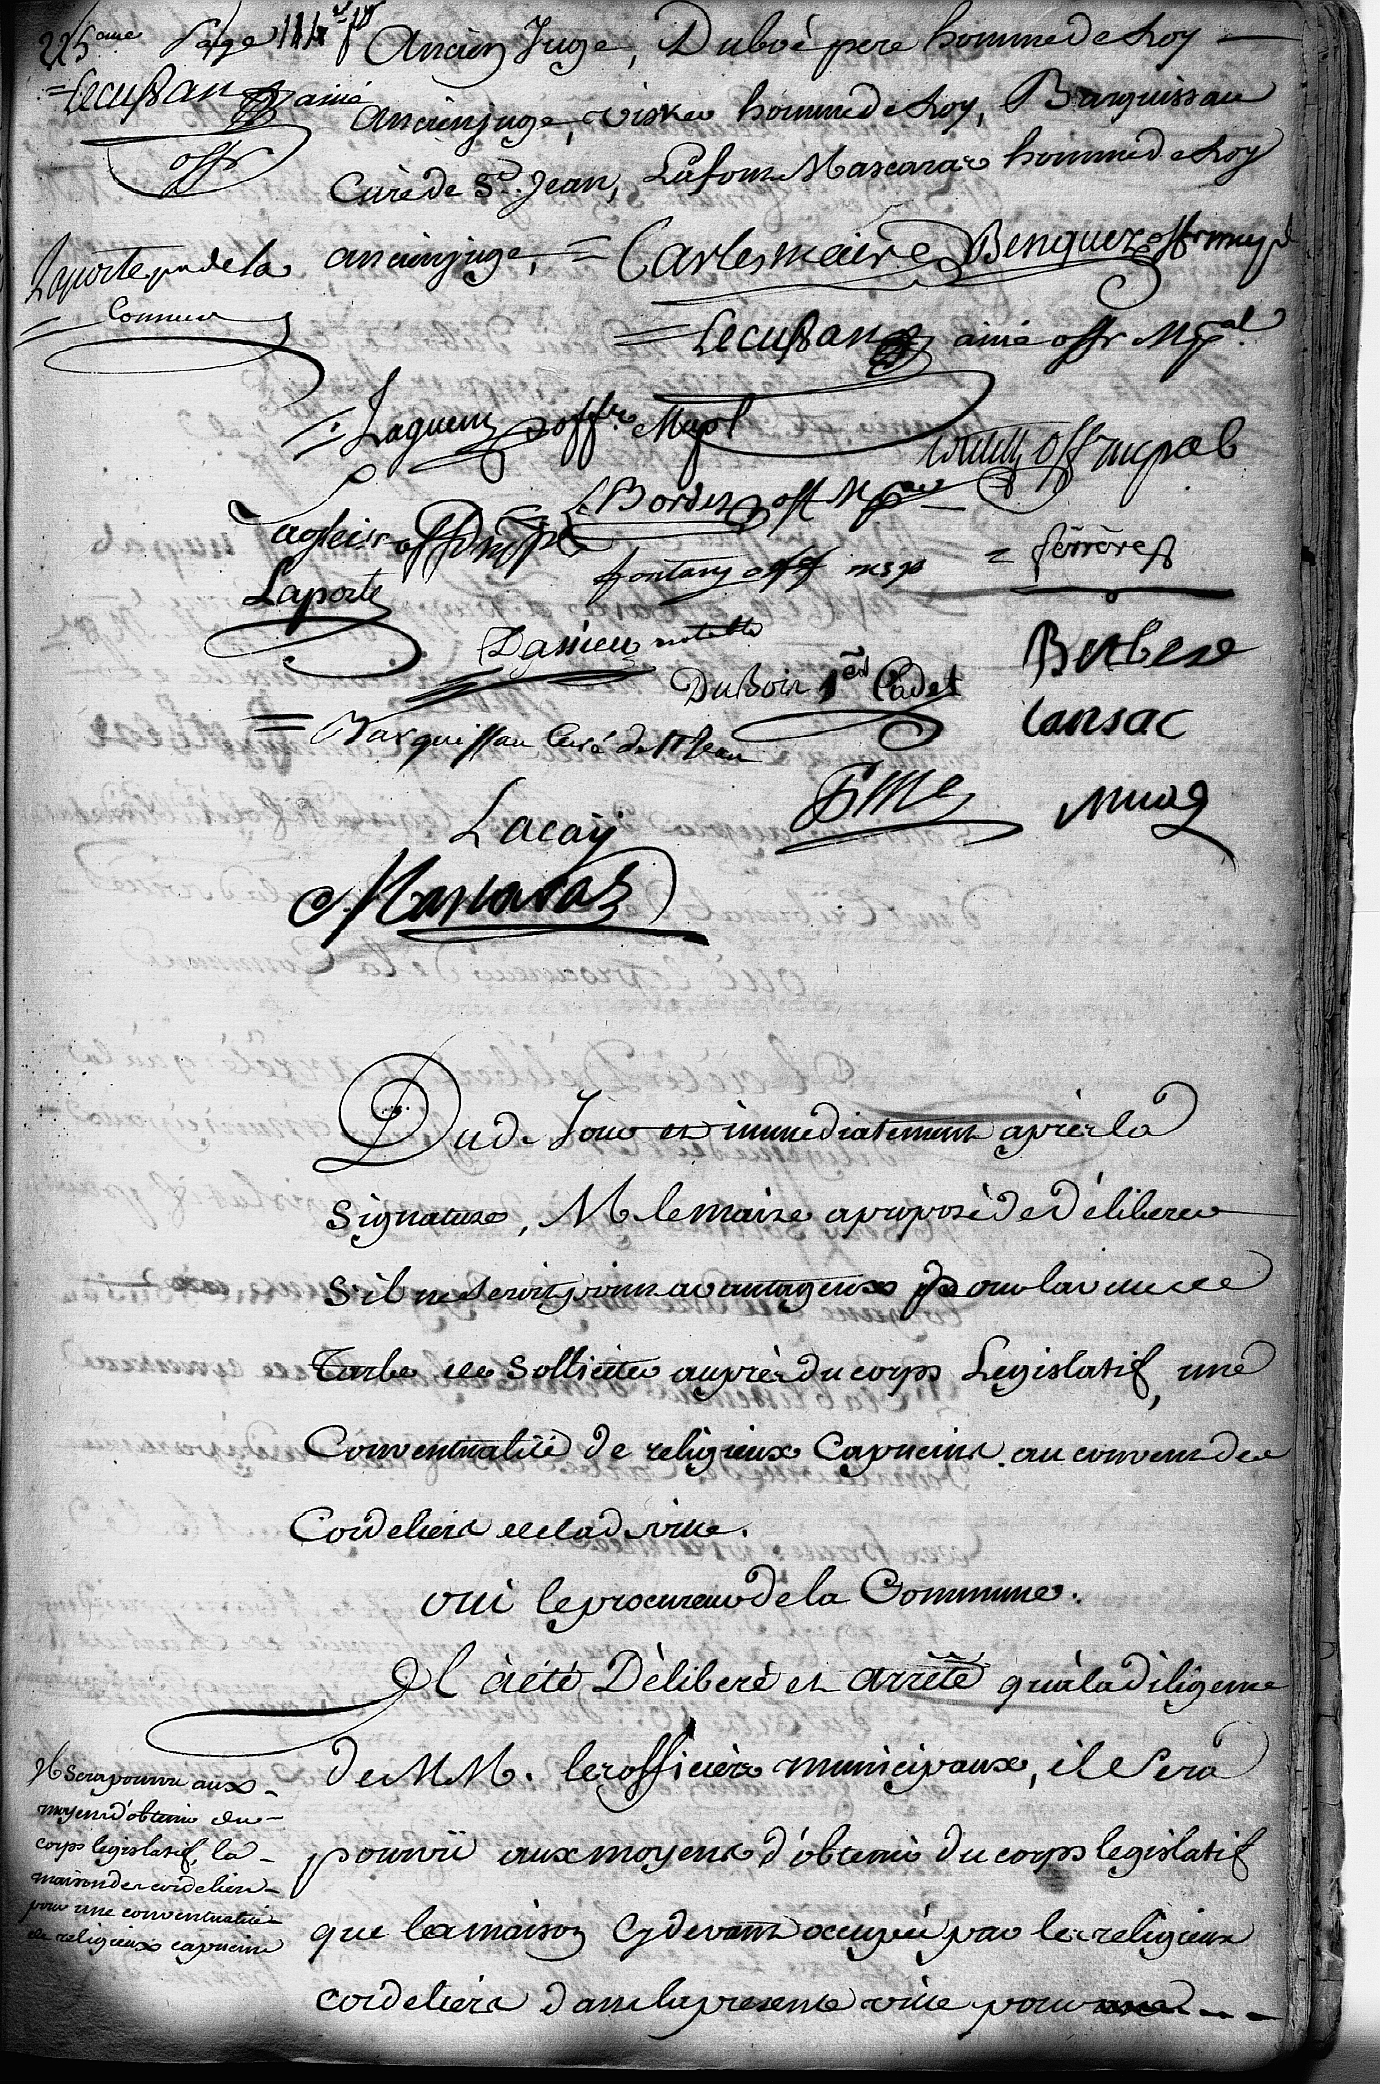 225eme page
Lecussan ainé
offr
Laporte pr de la
Commune
Ancien Juge, Duboé pere homme de Loy
Ancien juge, visker homme de Loy, Barquissau
Curé de St. Jean, Lafont Mascaras homme de Loy
ancien juge, =
Carles maire Benquez offr mupl
Lecussan ainé offr Mpal.
Laguens offr. Mupl
offr mupal
LBordes off Mpal
off mpl
fontan off mup
= fórrórés
Laporte
Dassieu notable
Dubois 1er Cadet
Barbere
= Barquissau Curé de St Jean
Cansac
Lacaÿ
Mascaras
Du d. Jour et immediatement après la
Signature, M. le maire a proposé de Déliberer
S'il ne seroit point avantageux pour la ville de
Tarbe de Solliciter auprès du corps Legislatif, une
Conventualité de religieux Capucins. au convent des
Cordeliers de lad. ville.
oui le procureur de la Commune.
Il à été Déliberé et arrêté qu'à la diligence
de MM. les officiers municipaux, il sera
pourvû aux moyens d'obtenir du corps legislatif
que la maison cy devant occupée par les religieux
cordeliers dans la presente ville pour
Il Sera pourvu aux
moyens d'obtenir du
corps legislatif, la
maison des cordeliers
pour une conventualité
de religieux capucins